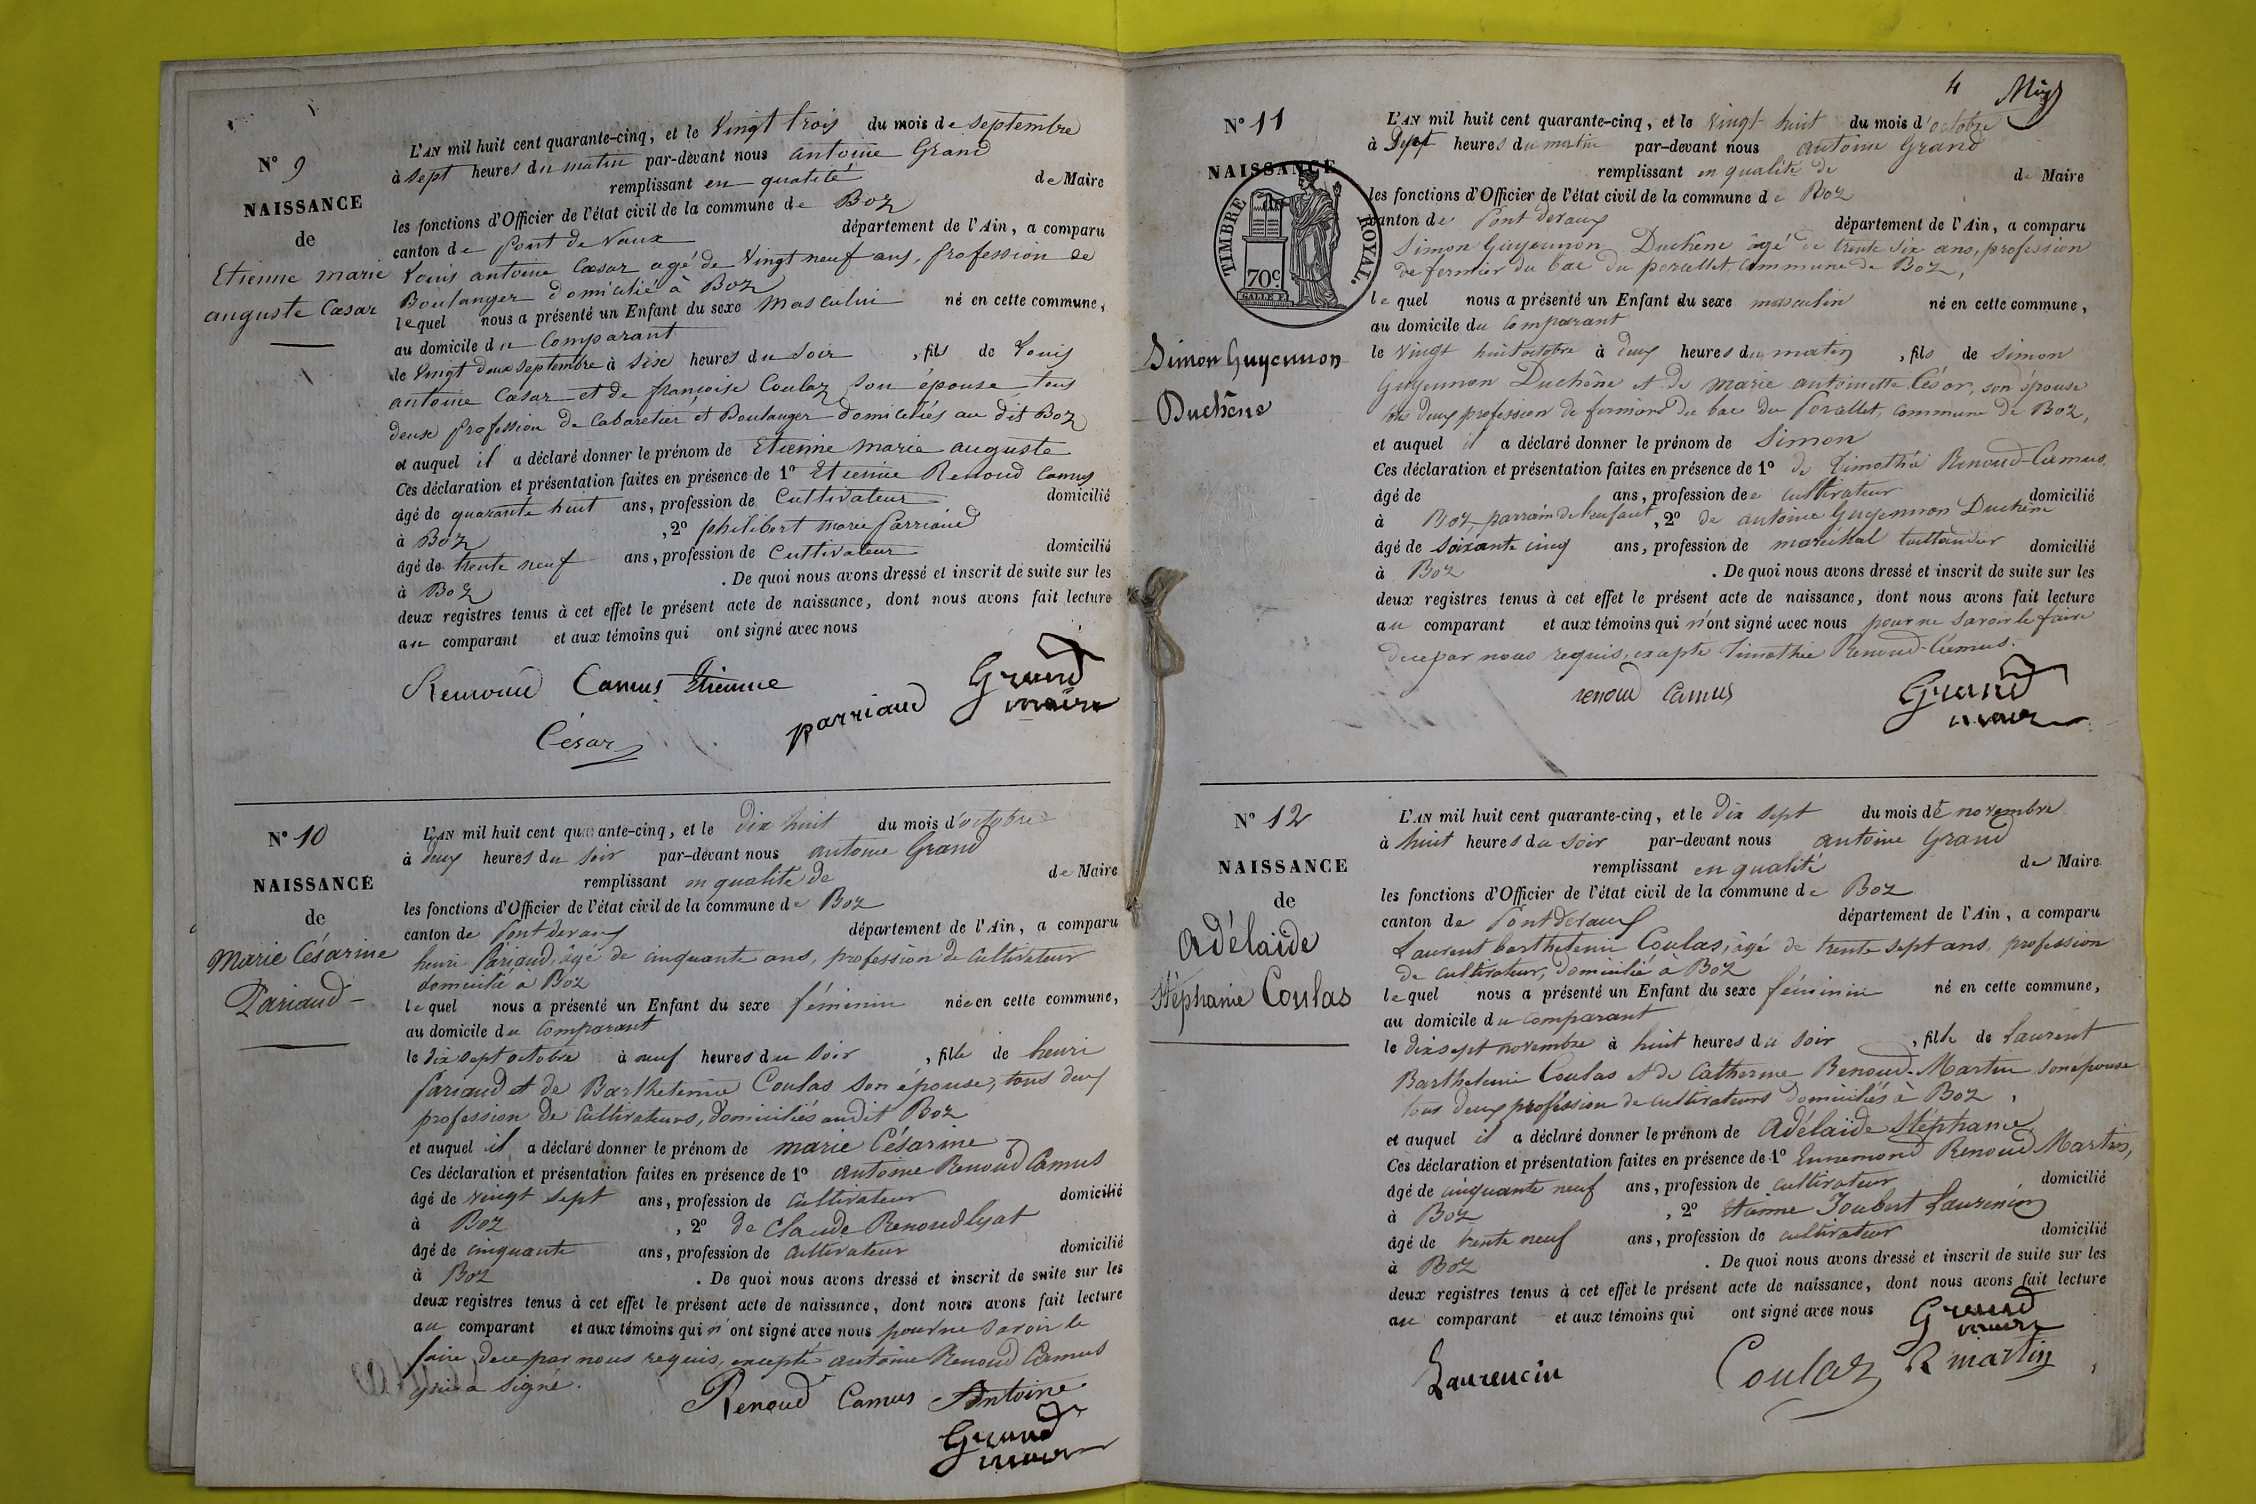 N° 9
NAISSANCE
de
Etienne marie
auguste Cæsar
L'AN mil huit cent quarante-cinq, et le Vingt trois du mois de septembre
à sept heures du matin par-devant nous antoine Grand
remplissant en qualité de Maire
les fonctions d'Officier de l'état civil de la commune de Boz
canton de Pont de Vaux département de l'Ain, a comparu
Louis antoine Cæsar agé de Vingt neuf ans, profession de
Boulanger domicilié à Boz
lequel nous a présenté un Enfant du sexe masculin né en cette commune,
au domicile du Comparant
le Vingt deux septembre à six heures du soir , fils de Louis
antoine Cæsar et de françoise Coulaz son épouse tous
deux profession de Cabaretier et Boulanger domiciliés au dit Boz
et auquel il a déclaré donner le prénom de Etienne marie auguste
Ces déclaration et présentation faites en présence de 1° Etienne Renoud Camus
âgé de quarante huit ans, profession de Cultivateur domicilié
à Boz , 2° philibert marie Parriaud
âgé de trente neuf ans, profession de Cultivateur domicilié
à Boz . De quoi nous avons dressé et inscrit de suite sur les
deux registres tenus à cet effet le présent acte de naissance, dont nous avons fait lecture
au comparant et aux témoins qui ont signé avec nous
Renoud Camus Etienne
parriaud
Grand
maire
César
N° 10
NAISSANCE
de
Marie Césarine
Pariaud
L'AN mil huit cent quarante-cinq, et le dix huit du mois d'octobre
à deux heures du soir par-devant nous antoine Grand
remplissant en qualité de de Maire
les fonctions d'Officier de l'état civil de la commune de Boz
canton de Pont devaux département de l'Ain, a comparu
henri Pariaud, âgé de cinquante ans, profession de cultivateur
domicilié à Boz
lequel nous a présenté un Enfant du sexe féminin née en cette commune,
au domicile du comparant
le dix sept octobre à neuf heures du soir , fille de henri
Pariaud et de Barthelemie Coulas son épouse, tous deux
profession de cultivateurs, domiciliés audit Boz
et auquel il a déclaré donner le prénom de marie Césarine
Ces déclaration et présentation faites en présence de 1° antoine Renoud Camus
âgé de vingt sept ans, profession de cultivateur domicilié
à Boz , 2° de Claude Renoud lyat
âgé de cinquante ans, profession de cultivateur domicilié
à Boz . De quoi nous avons dressé et inscrit de suite sur les
deux registres tenus à cet effet le présent acte de naissance, dont nous avons fait lecture
au comparant et aux témoins qui n'ont signé avec nous pour ne savoir le
faire de ce par nous requis, excepté antoine Renoud Camus
qui a signé.
Renoud Camus Antoine
Grand
maire
4
N° 11
NAISSANCE
TIMBRE ROYAL.
70c
Simon Guyennon
Duchêne
L'AN mil huit cent quarante-cinq, et le vingt huit du mois d'octobre
à Sept heures du matin par-devant nous antoine Grand
remplissant en qualité de de Maire
les fonctions d'Officier de l'état civil de la commune de Boz
canton de Pont devaux département de l'Ain, a comparu
Simon Guyennon Duchêne âgé de trente six ans, profession
de fermier du bac du porallet, commune de Boz,
lequel nous a présenté un Enfant du sexe masculin né en cette commune,
au domicile du comparant
le vingt huit octobre à deux heures du matin , fils de Simon
Guyennon Duchêne et de marie antoinette César, son épouse
tous deux profession de fermiers du bac du Porallet, commune de Boz,
et auquel il a déclaré donner le prénom de Simon
Ces déclaration et présentation faites en présence de 1° de Timothée Renoud-Camus,
âgé de ans, profession de cultivateur domicilié
à Boz, parrain de l'enfant, 2° de antoine Guyennon Duchêne
âgé de soixante cinq ans, profession de marechal taillandier domicilié
à Boz . De quoi nous avons dressé et inscrit de suite sur les
deux registres tenus à cet effet le présent acte de naissance, dont nous avons fait lecture
au comparant et aux témoins qui n'ont signé avec nous pour ne savoir le faire
de ce par nous requis, excepté Timothée Renoud-Camus.
renoud Camus
Grand
maire
N° 12
NAISSANCE
de
Adélaïde
Stéphanie Coulas
L'AN mil huit cent quarante-cinq, et le dix sept du mois de novembre
à huit heures du soir par-devant nous antoine Grand
remplissant en qualité de Maire
les fonctions d'Officier de l'état civil de la commune de Boz
canton de Pont devaux département de l'Ain, a comparu
Laurent barthelemi Coulas, âgé de trente sept ans, profession
de cultivateur, domicilié à Boz
lequel nous a présenté un Enfant du sexe féminin né en cette commune,
au domicile du comparant
le dix sept novembre à huit heures du soir , fille de laurent
Barthelemi Coulas et de Catherine Renoud-Martin son épouse
tous deux profession de cultivateurs domiciliés à Boz,
et auquel il a déclaré donner le prénom de Adélaïde Stéphanie
Ces déclaration et présentation faites en présence de 1° Ennemond Renoud Martin,
âgé de cinquante neuf ans, profession de cultivateur domicilié
à Boz , 2° Etienne Joubert Laurencin
âgé de trente neuf ans, profession de cultivateur domicilié
à Boz . De quoi nous avons dressé et inscrit de suite sur les
deux registres tenus à cet effet le présent acte de naissance, dont nous avons fait lecture
au comparant et aux témoins qui ont signé avec nous
Grand
maire
Laurencin
Coulaz
R martin